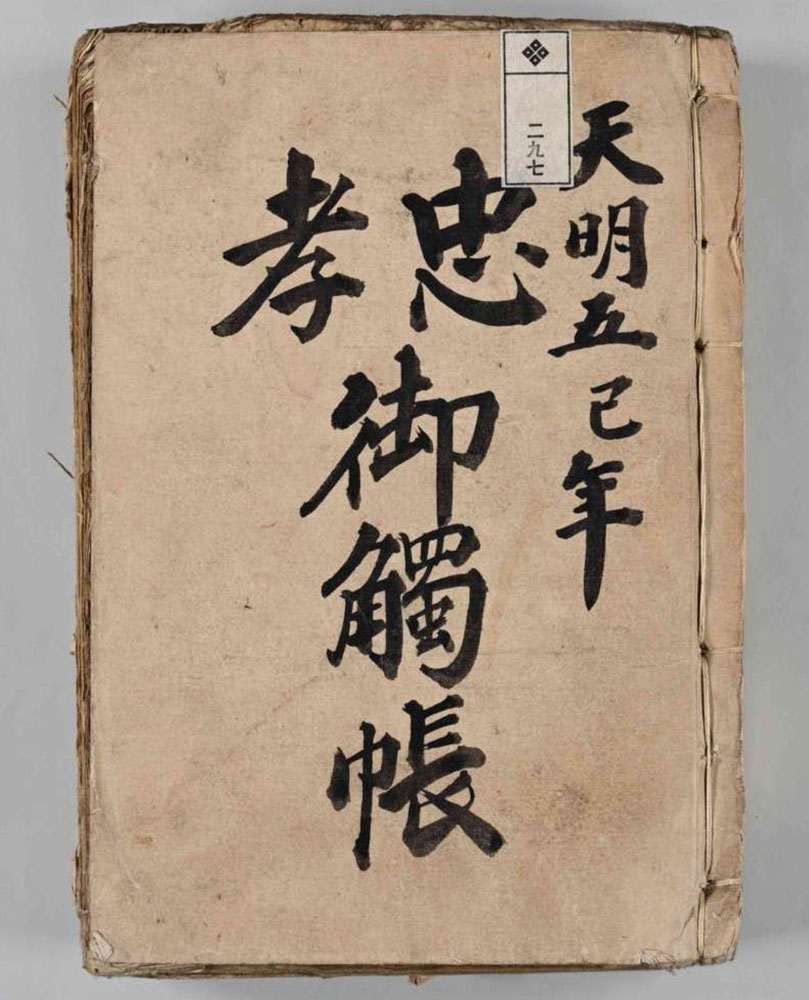 天明五巳年
二九七
忠
孝
御觸帳